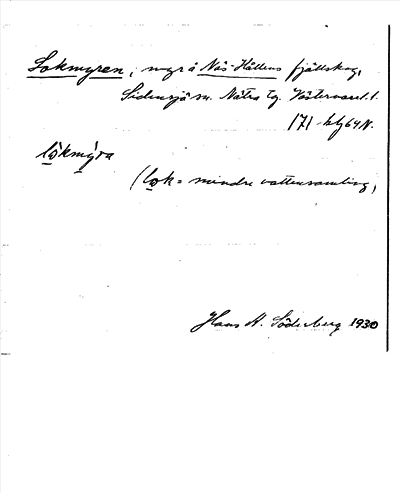 Lokmyren, myr å Näs-Hållens fjällskog,
Sidensjö sn. Nätra tg. Västernorrl. l.
171 blg 64 N.
lo̱kmy̱ra
(lo̱k = mindre vattensamling)
Hans A. Söderberg 1930